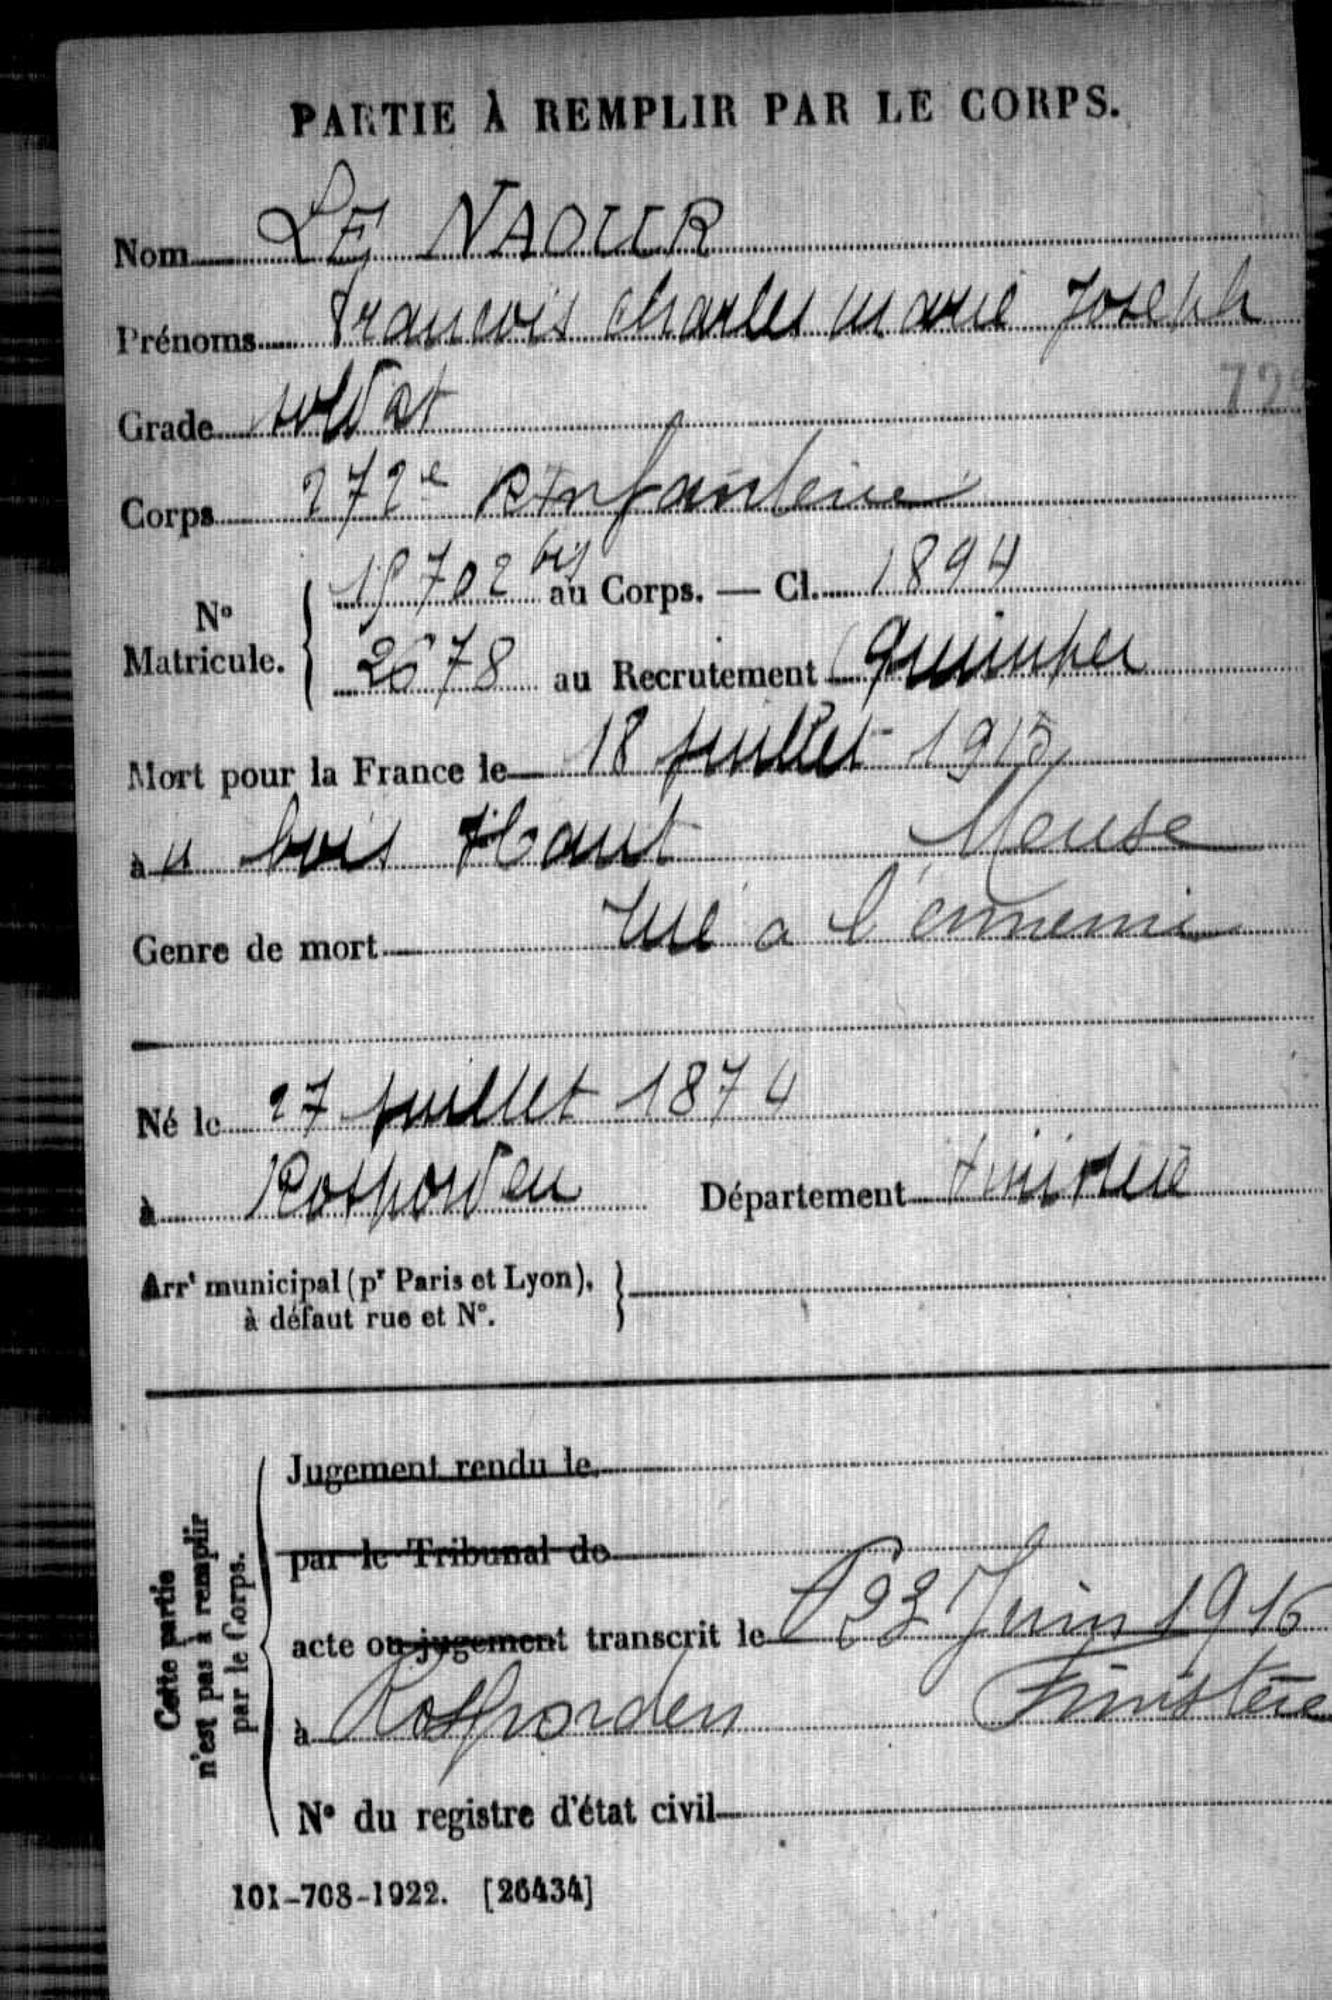 PARTIE À REMPLIR PAR LE CORPS.
Nom LE NAOUR
Prénoms francois charles marie Joseph
Grade soldat
72
Corps 272e R Infanterie
N° Matricule. 15702 bis au Corps. — Cl. 1894
2678 au Recrutement Quimper
Mort pour la France le 18 juillet 1915
à u bois Haut Meuse
Genre de mort tué a l'ennemi
Né le 27 juillet 1874
à Rosporden Département finistere
Arrt municipal (pr Paris et Lyon),
à défaut rue et N°.
Cette partie
n'est pas à remplir
par le Corps.
Jugement rendu le
par le Tribunal de
acte ou jugement transcrit le 23 Juin 1916
à Rosporden Finistère
N° du registre d'état civil
101-708-1922. [26434]